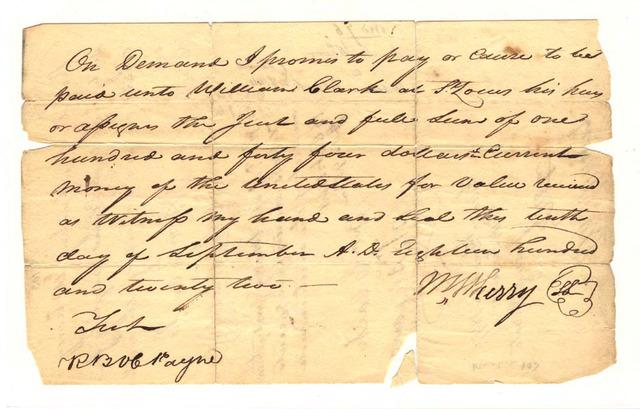 On Demand I promis to pay or cause to be
paid unto William Clark at St Louis his heirs
or assignes the Just and full sum of one
hundred and forty four dollars Current
money of the united states for value received
as Witness my hand and seal this tenth
day of September A.D. Eighteen hundred
and twenty two —
Wherry
Test